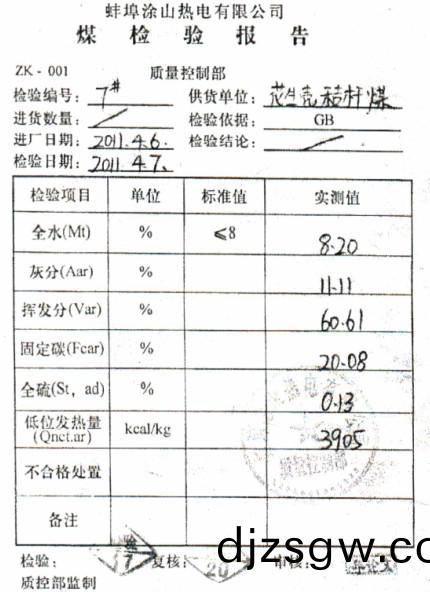 蚌埠涂山热电有限公司
煤检验报告
ZK-001 质量控制部
检验编号: 7# 供货单位: 花生壳秸杆煤
进货数量: 检验依据: GB
进厂日期: 2011.4.6. 检验结论:
检验日期: 2011.4.7.
检验项目 单位 标准值 实测值
全水(Mt) % ≤8 8.20
灰分(Aar) % 11.11
挥发分(Var) % 60.61
固定碳(Fcar) % 20.08
全硫(St, ad) % 0.13
低位发热量 (Qnct.ar) kcal/kg 3905
不合格处置
备注
检验: 17 复核: 20 审核:
质控部监制
djzsgw.co